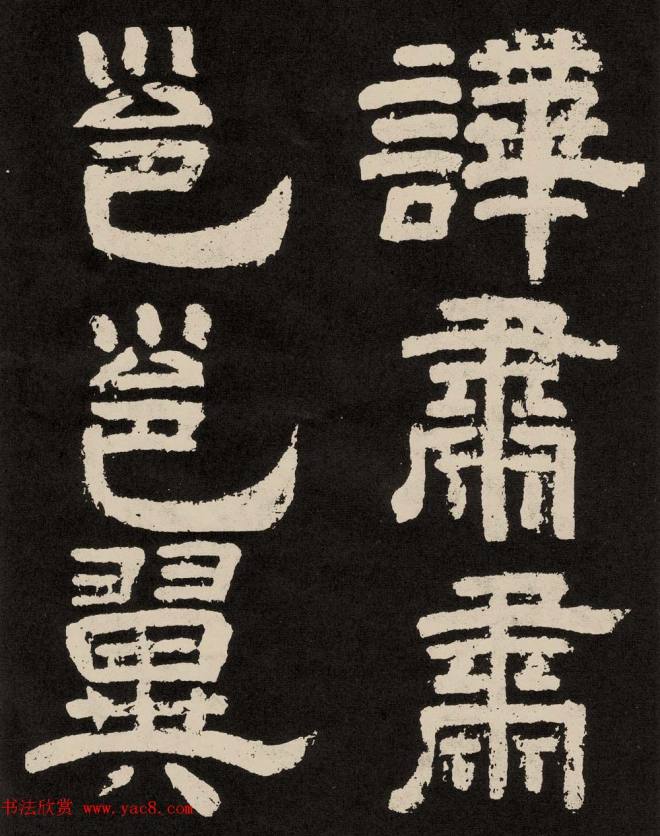 譁肅肅
邕邕翼
书法欣赏 www.yac8.com